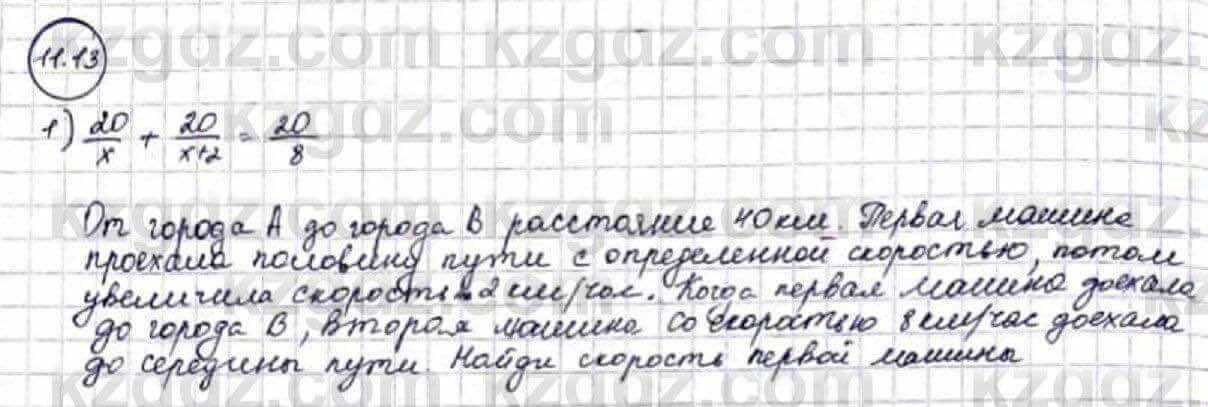 kzgdz.com kzgdz.com kzgdz.com
11.13
1) 20/x + 20/(x+2) = 20/8
kzgdz.com kz
От города А до города В расстояние 40 км. Первая машина
проехала половину пути с определенной скоростью, потом
увеличила скорость на 2 км/час. Когда первая машина доехала
до города В, вторая машина со скоростью 8 км/час доехала
до середины пути. Найди скорость первой машины
kzgdz.com kzgdz.com kzgdz.com